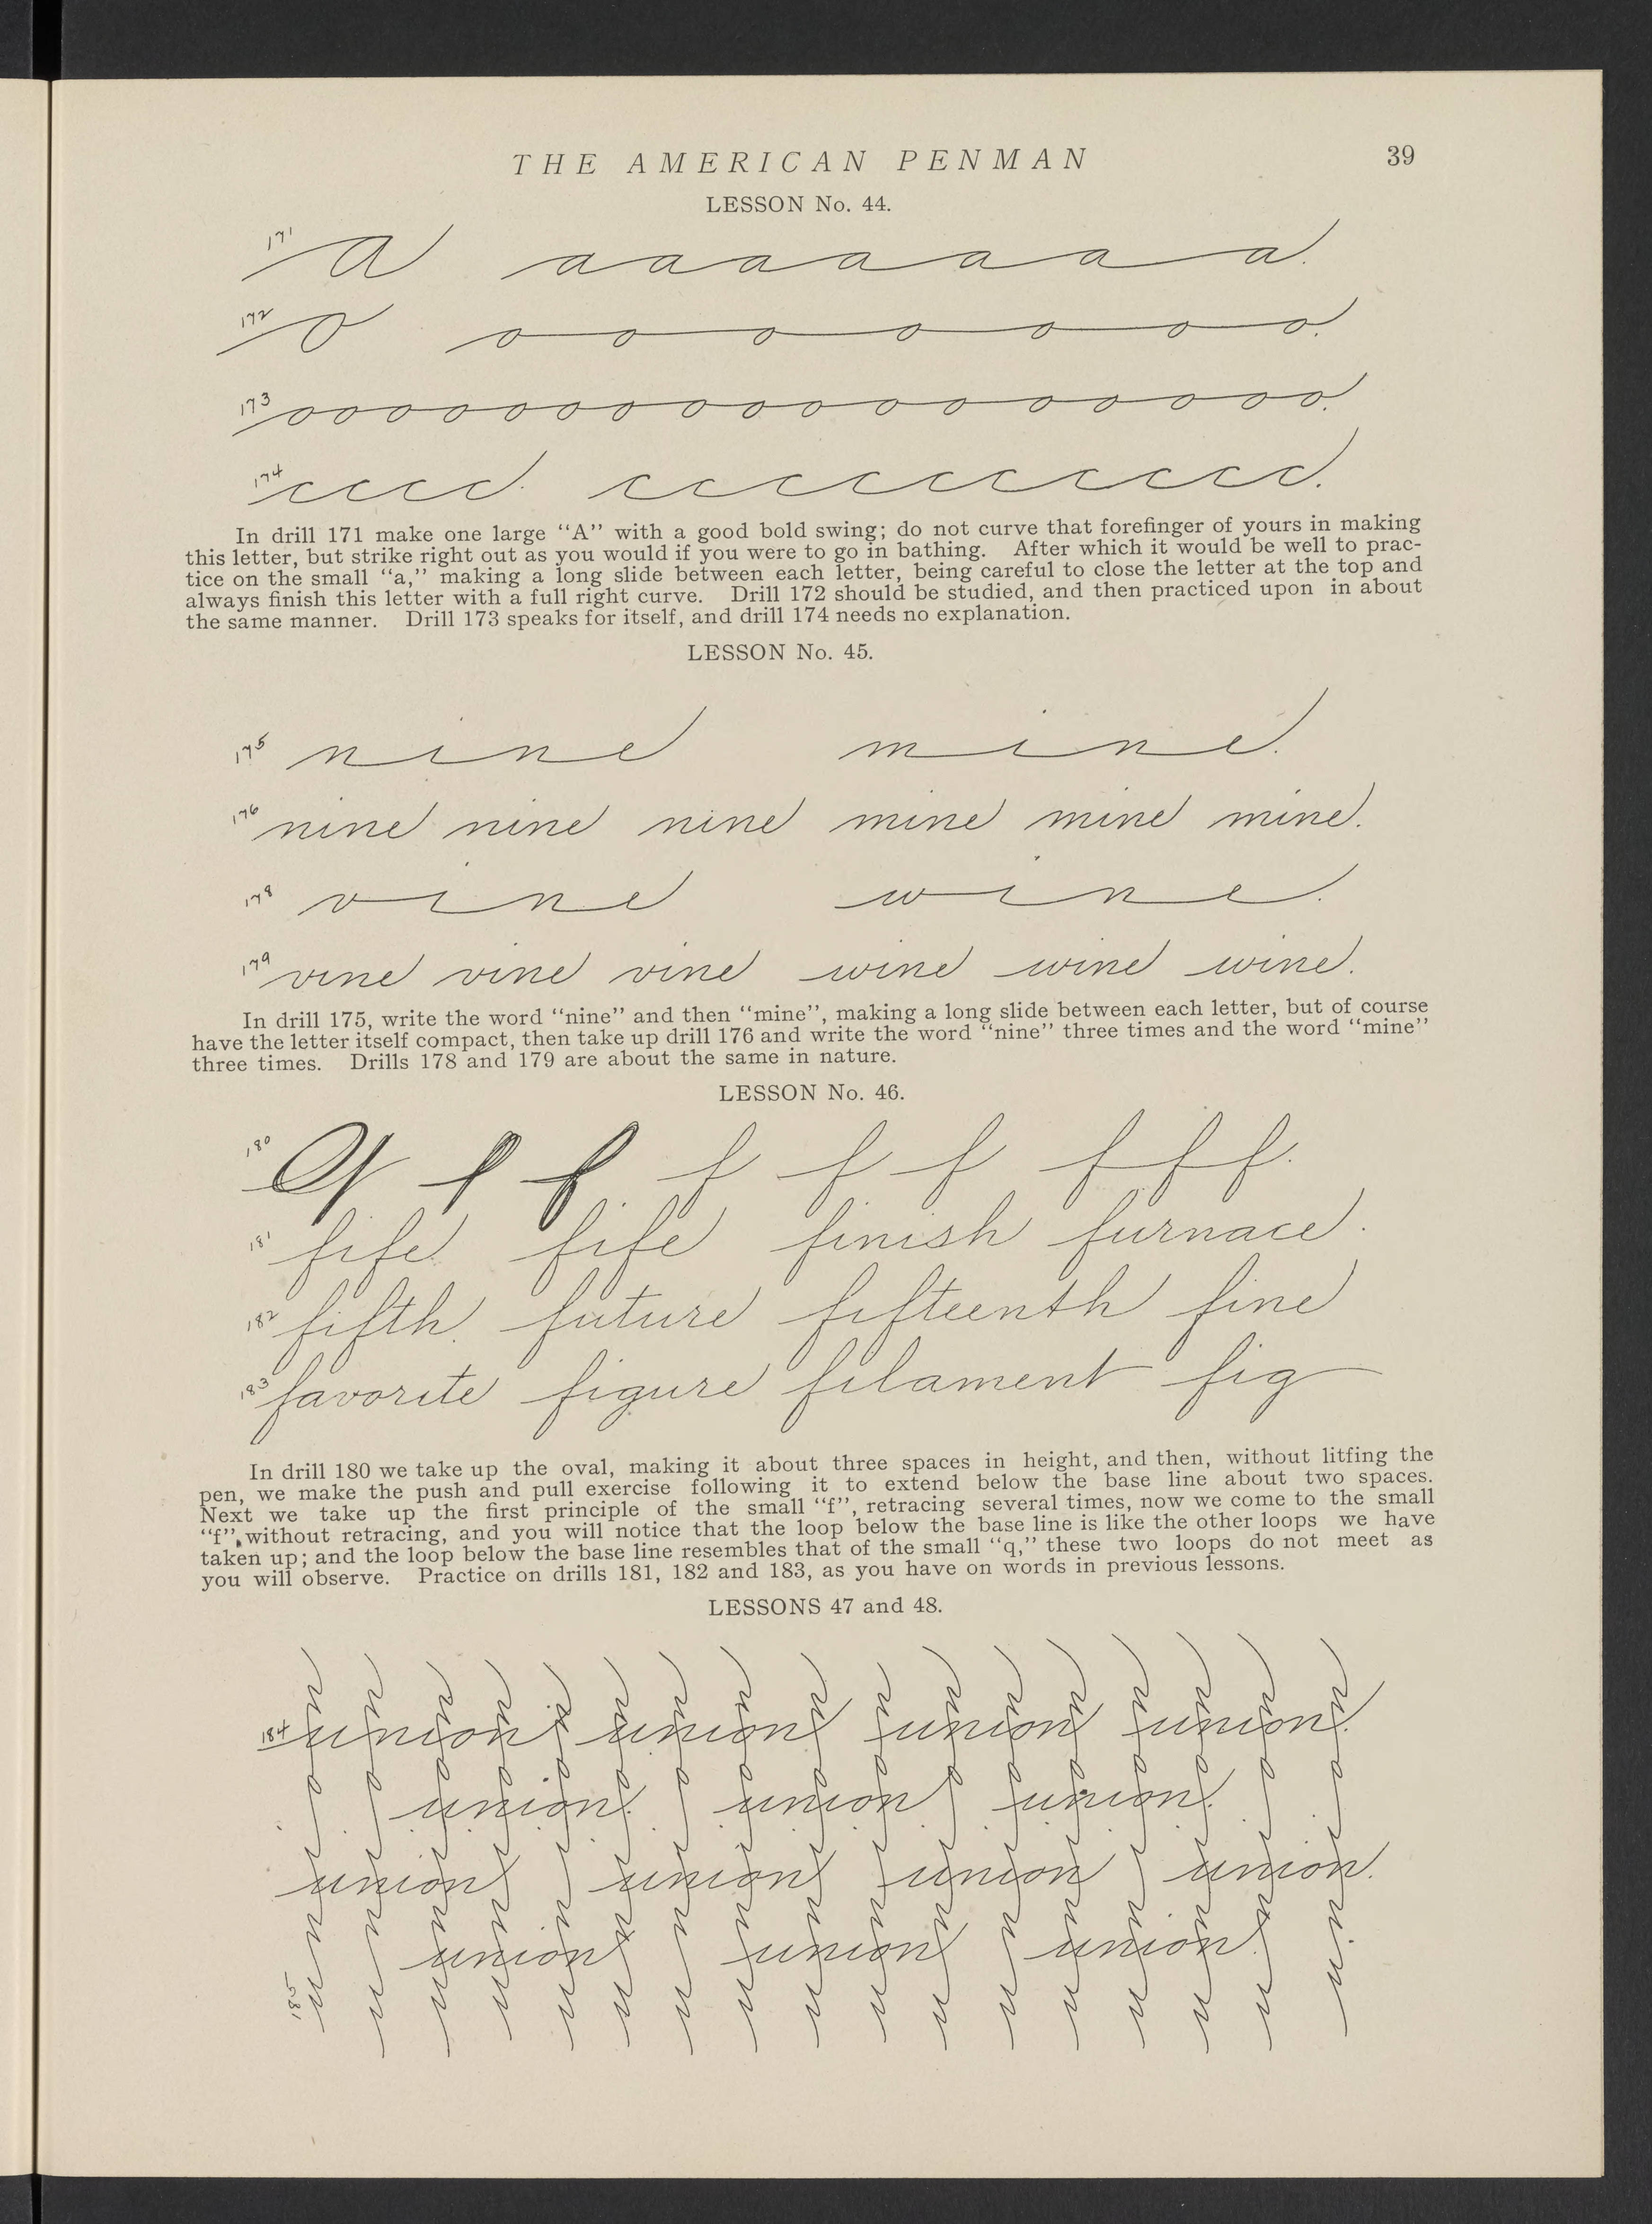 THE AMERICAN PENMAN 39
LESSON No. 44.
171 a a a a a a a a.
172 o o o o o o o o.
173 o o o o o o o o o o o o o o o o o o o o.
174 c c c c c. c c c c c c c c c c.
In drill 171 make one large “A” with a good bold swing; do not curve that forefinger of yours in making
this letter, but strike right out as you would if you were to go in bathing. After which it would be well to prac-
tice on the small “a,” making a long slide between each letter, being careful to close the letter at the top and
always finish this letter with a full right curve. Drill 172 should be studied, and then practiced upon in about
the same manner. Drill 173 speaks for itself, and drill 174 needs no explanation.
LESSON No. 45.
175 nine mine.
176 nine nine nine mine mine mine.
178 vine wine.
179 vine vine vine wine wine wine.
In drill 175, write the word “nine” and then “mine”, making a long slide between each letter, but of course
have the letter itself compact, then take up drill 176 and write the word “nine” three times and the word “mine”
three times. Drills 178 and 179 are about the same in nature.
LESSON No. 46.
180 f f f f f f f.
181 fife fife finish furnace.
182 fifth. future fifteenth fine
183 favorite figure filament fig
In drill 180 we take up the oval, making it about three spaces in height, and then, without litfing the
pen, we make the push and pull exercise following it to extend below the base line about two spaces.
Next we take up the first principle of the small “f”, retracing several times, now we come to the small
“f”, without retracing, and you will notice that the loop below the base line is like the other loops we have
taken up; and the loop below the base line resembles that of the small “q,” these two loops do not meet as
you will observe. Practice on drills 181, 182 and 183, as you have on words in previous lessons.
LESSONS 47 and 48.
184 union union union union.
union. union union.
union union union union.
union union union.
185 union union union union union union union union union union union union union union union union union